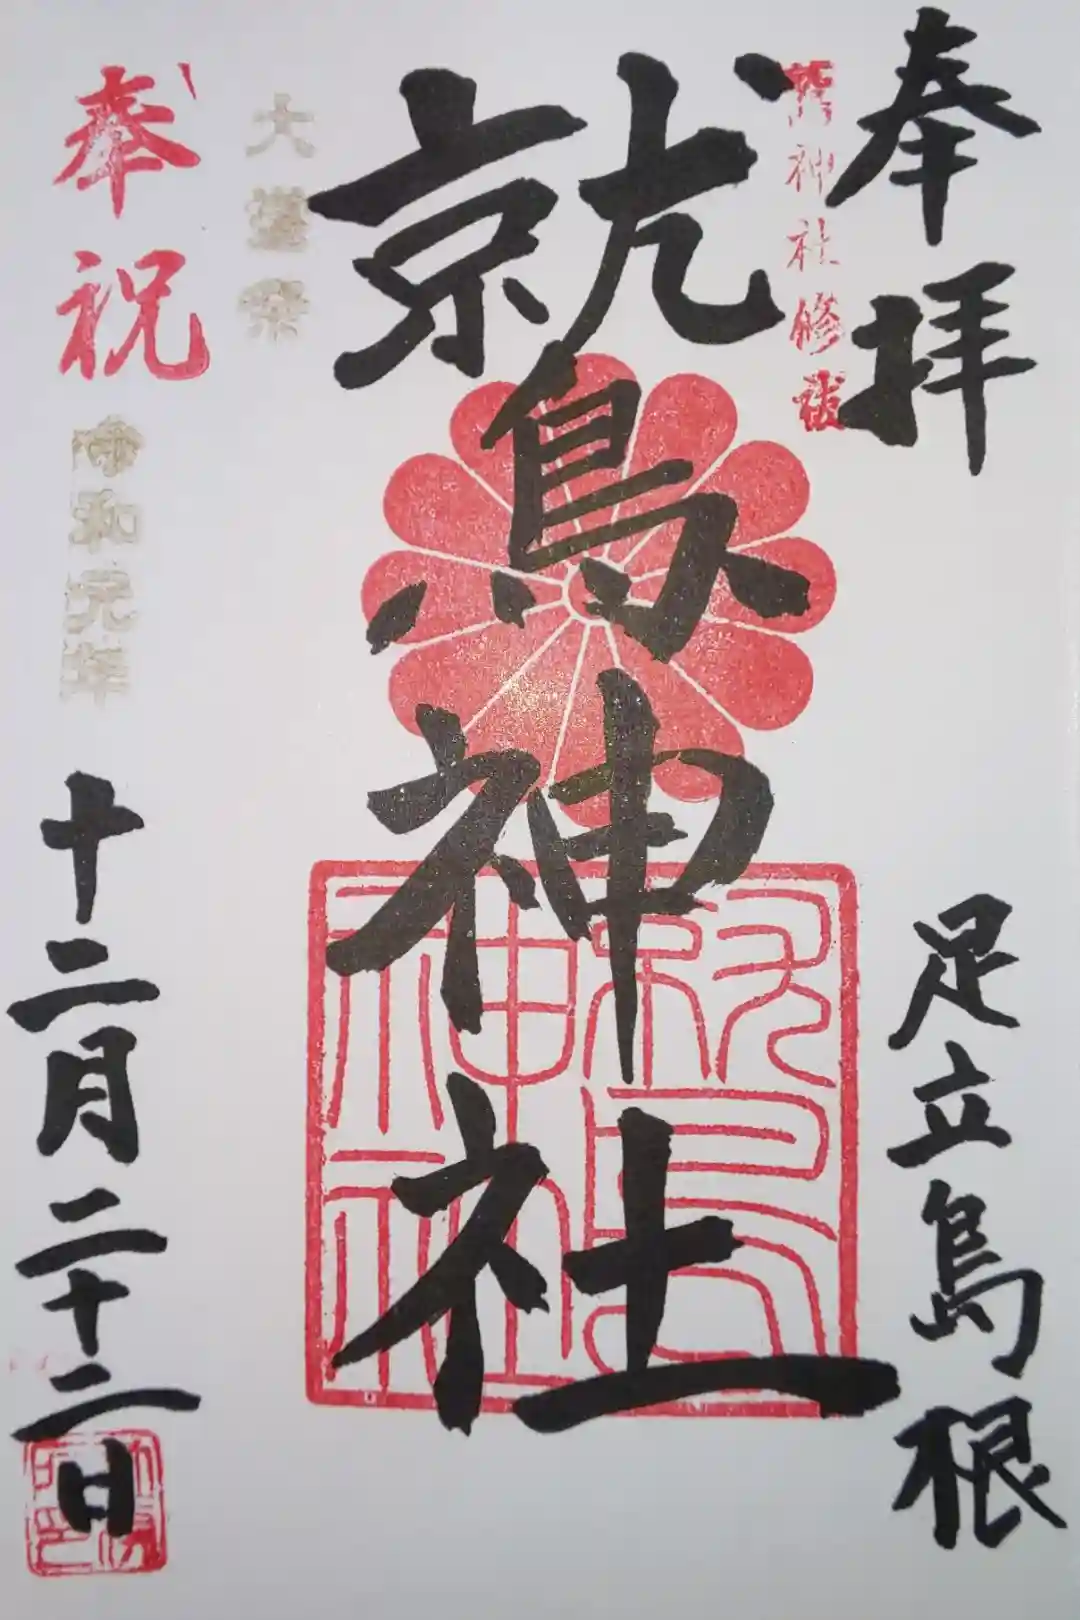 奉拝
足立島根
鷲神社修祓
鷲神社
鷲神社
大嘗祭
奉祝
令和元年
十二月二十二日